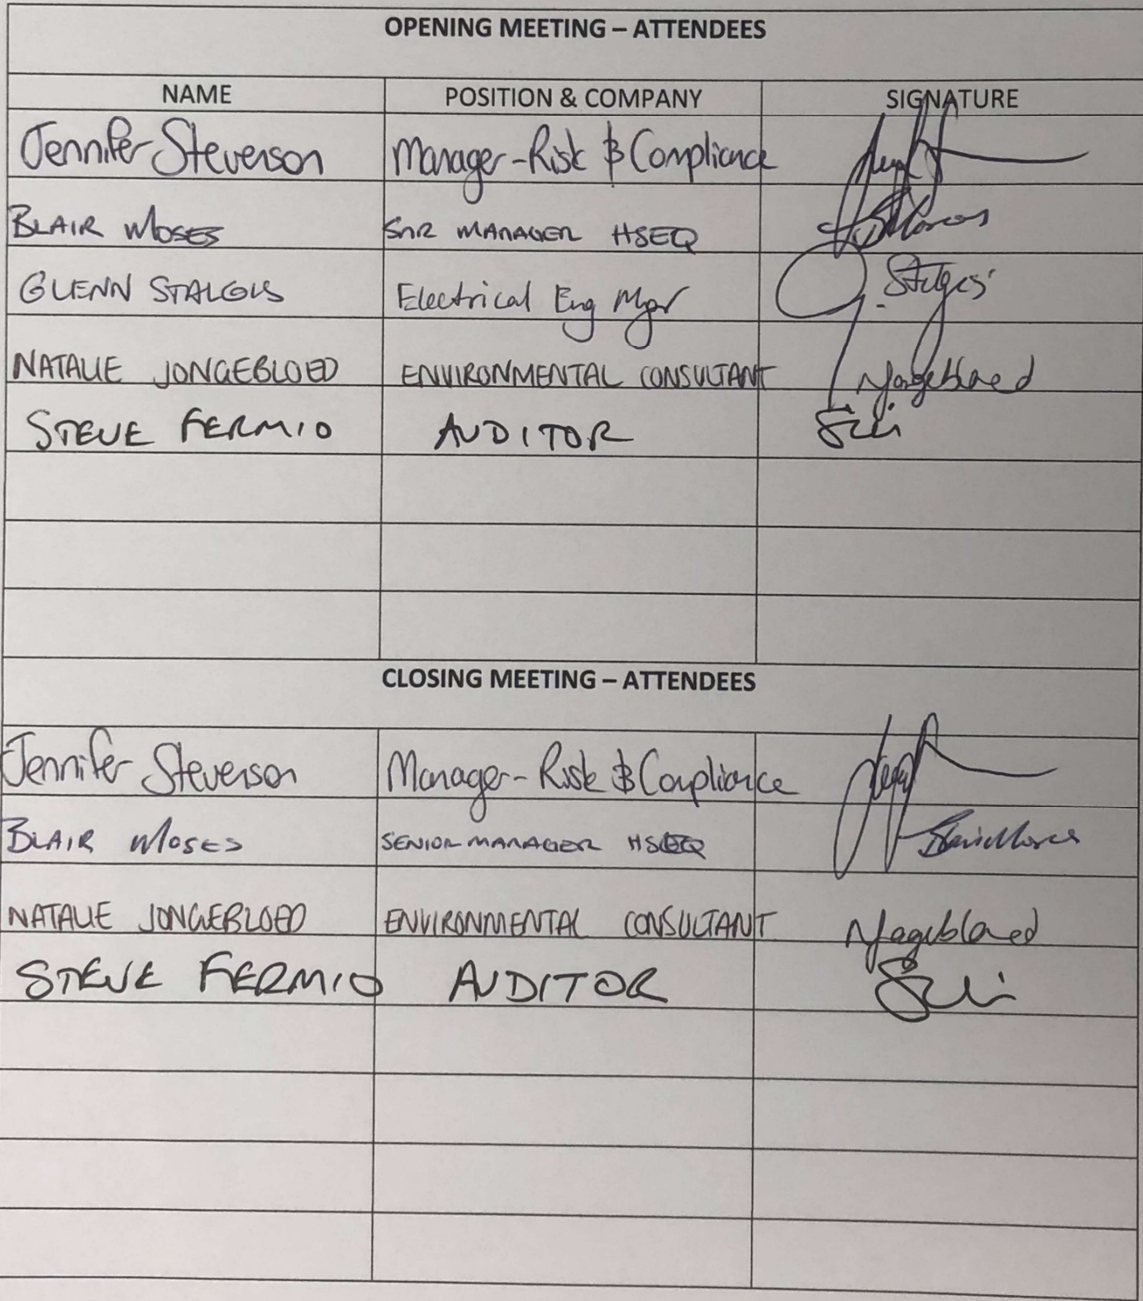 OPENING MEETING – ATTENDEES
NAME POSITION & COMPANY SIGNATURE
Jennifer Stevenson Manager-Risk & Compliance
BLAIR MOSES SNR MANAGER HSEQ
GLENN STALGIS Electrical Eng Mgr
NATALIE JONGEBLOED ENVIRONMENTAL CONSULTANT
STEVE FERMIO AUDITOR
CLOSING MEETING – ATTENDEES
Jennifer Stevenson Manager-Risk & Compliance
BLAIR MOSES SENIOR MANAGER HSEQ
NATALIE JONGEBLOED ENVIRONMENTAL CONSULTANT
STEVE FERMIO AUDITOR